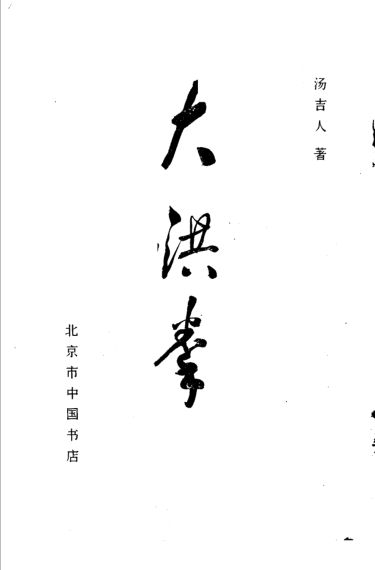 汤吉人著
大洪拳
北京市中国书店